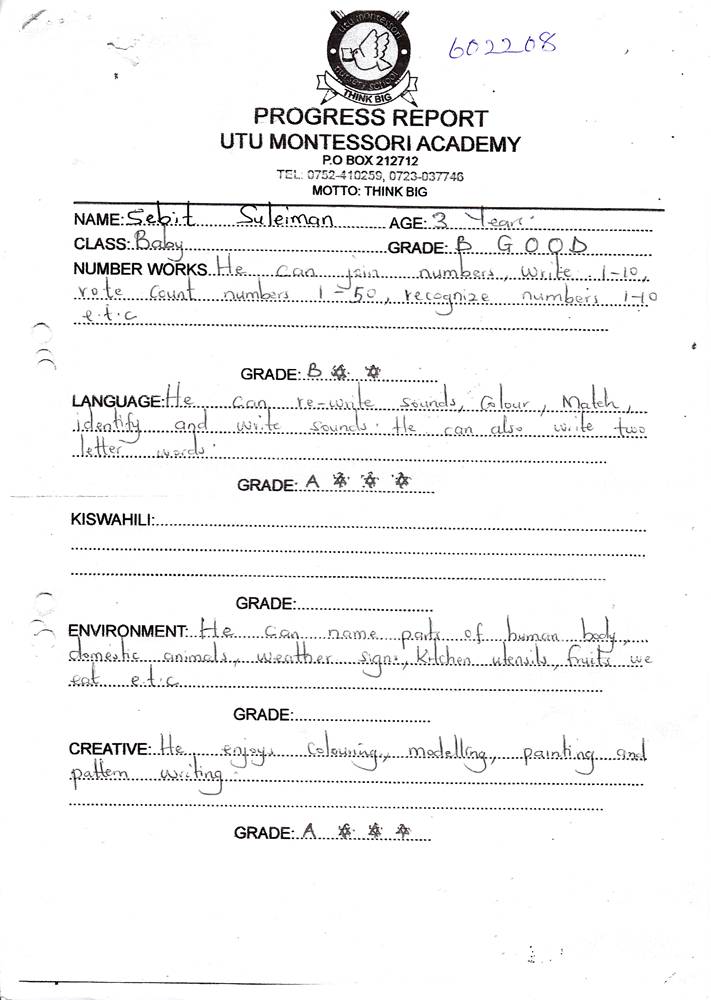 602208
utu montessori
nursery school
THINK BIG
PROGRESS REPORT
UTU MONTESSORI ACADEMY
P.O BOX 212712
TEL: 0752-410259, 0723-037746
MOTTO: THINK BIG
NAME: Sebit Suleiman AGE: 3 Years
CLASS: Baby GRADE: B GOOD
NUMBER WORKS He can join numbers, write 1-10,
rote count numbers 1-50, recognize numbers 1-10
e.t.c
GRADE: B
LANGUAGE: He can re-write sounds, Colour, Match,
identify and write sounds. He can also write two
letter words.
GRADE: A
KISWAHILI:
GRADE:
ENVIRONMENT: He can name parts of human body,
domestic animals, weather signs, Kitchen utensils, fruits we
eat e.t.c
GRADE:
CREATIVE: He enjoys Colouring, modelling, painting and
pattern writing.
GRADE: A